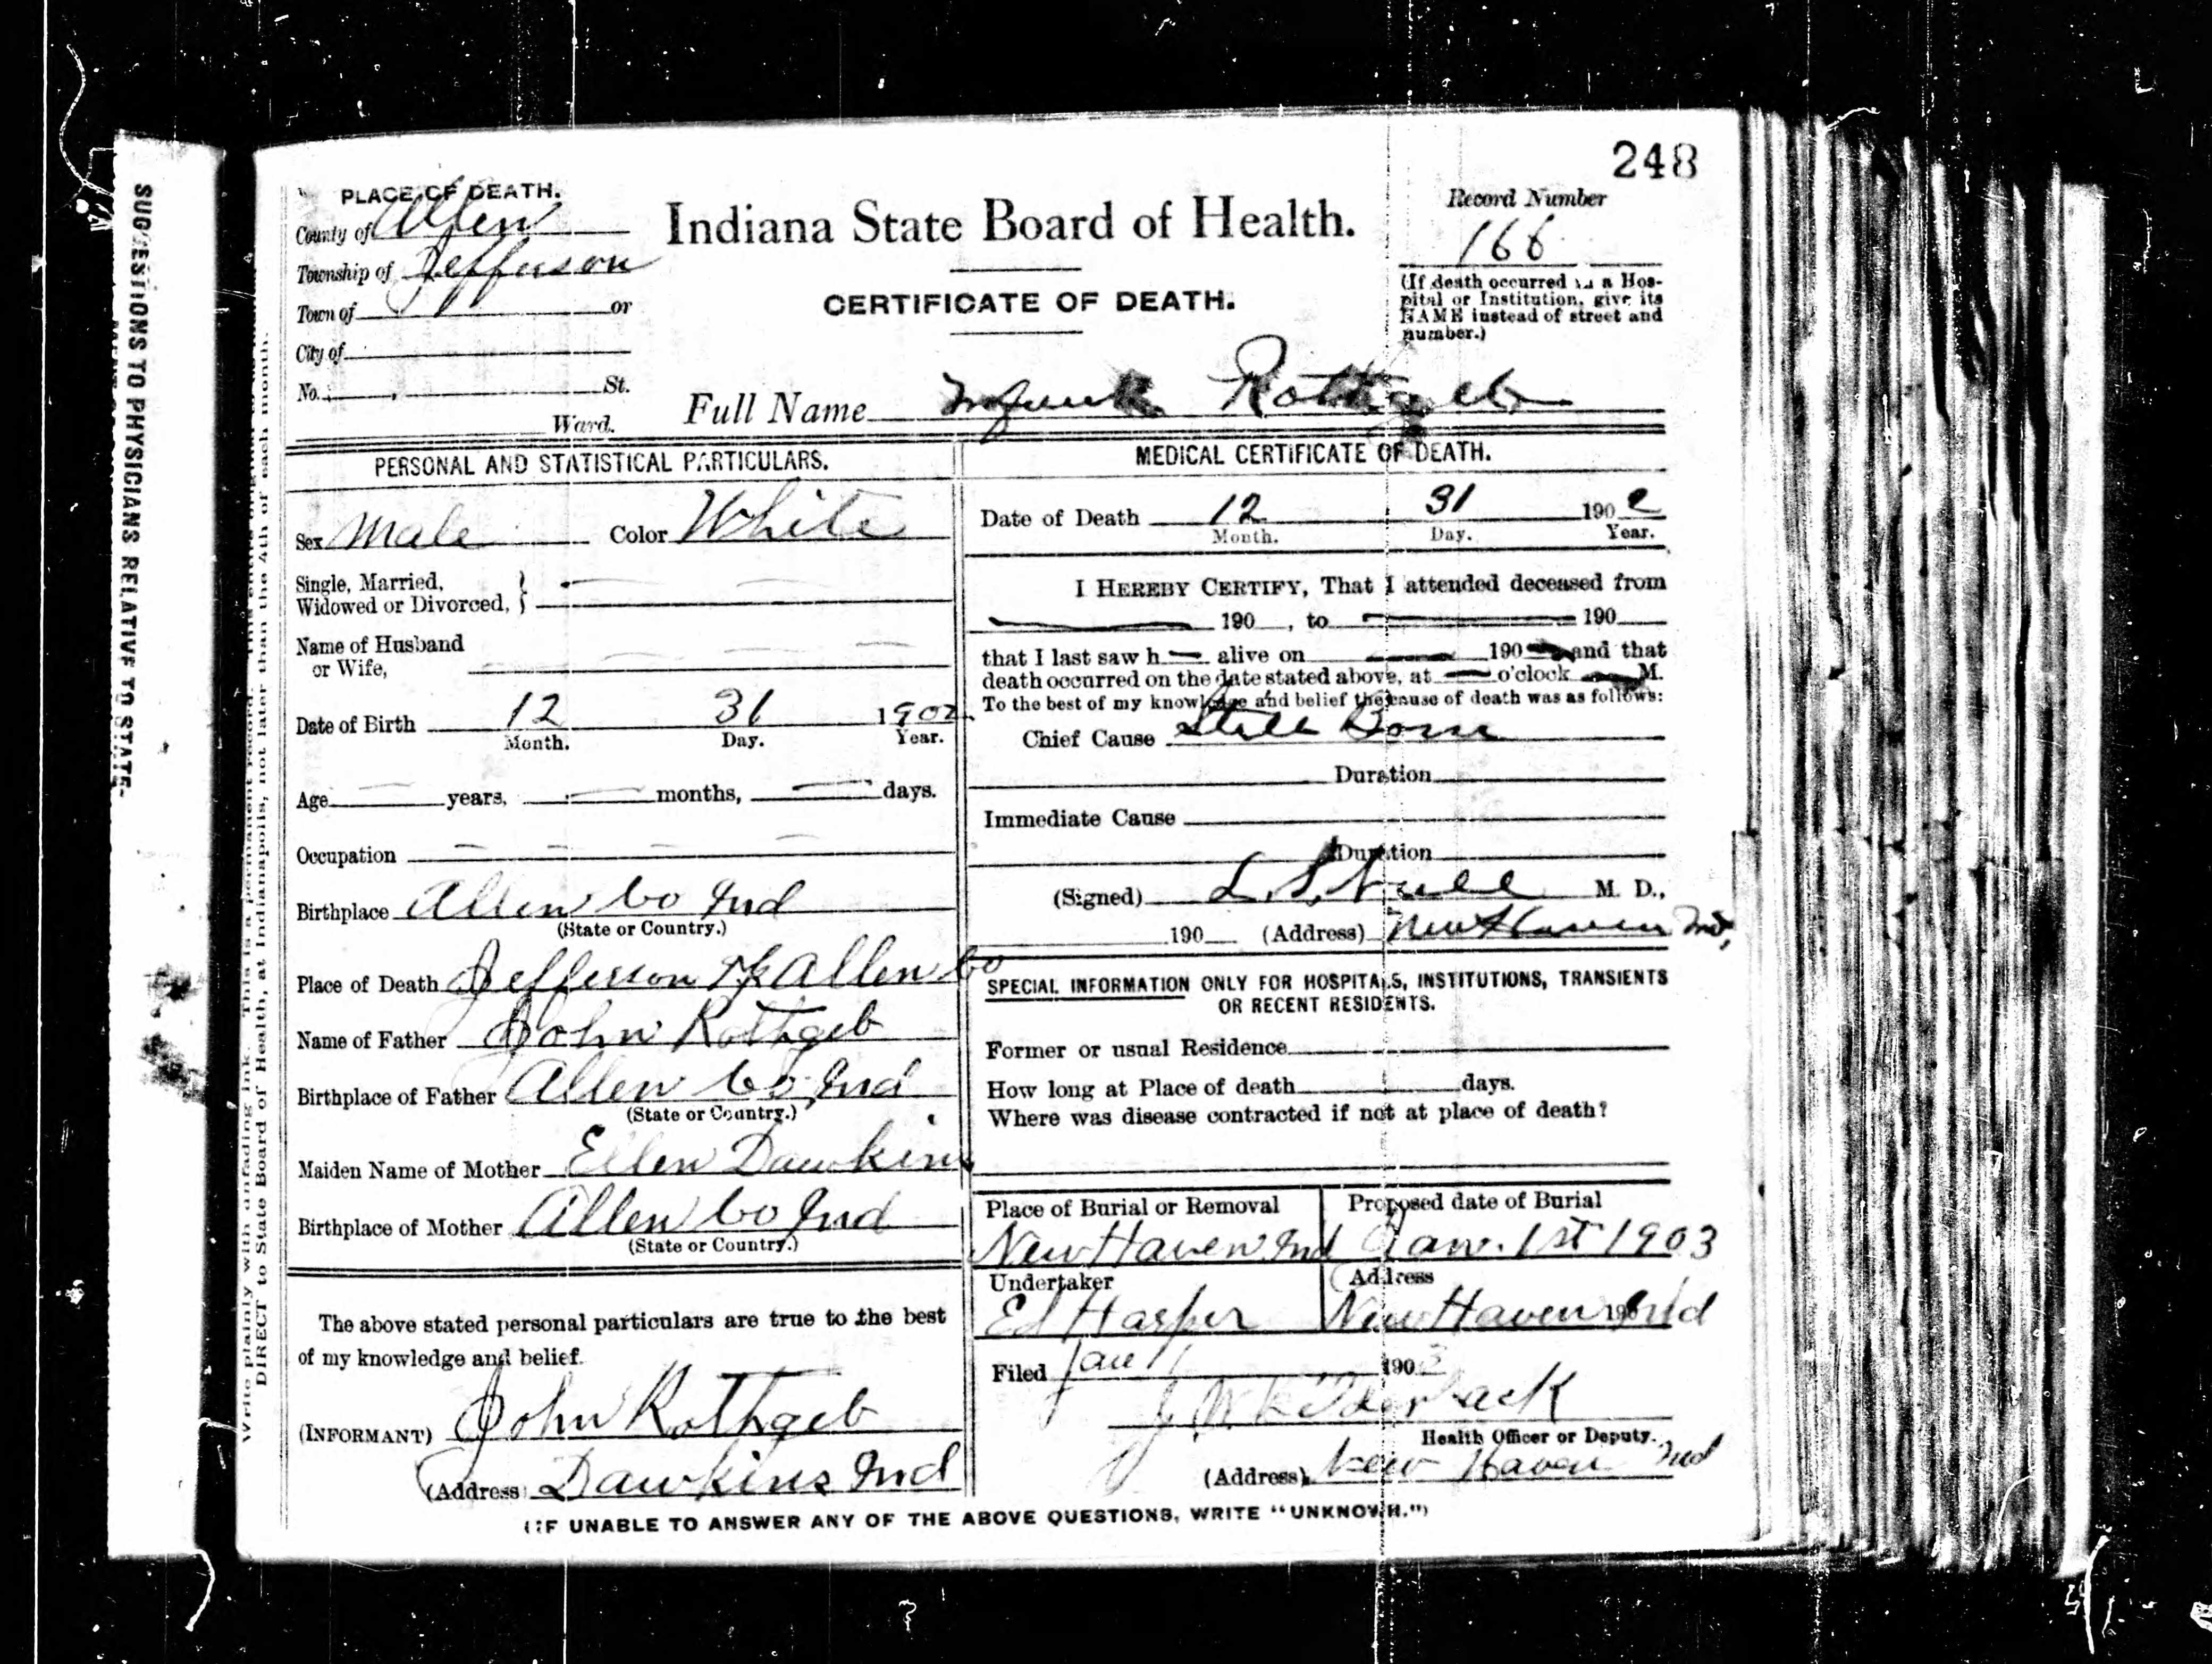 248
PLACE OF DEATH.
County of Allen
Township of Jefferson
Town of or
City of
No. St.
Ward.
Indiana State Board of Health.
CERTIFICATE OF DEATH.
Record Number
166
(If death occurred in a Hos-
pital or Institution, give its
NAME instead of street and
number.)
Full Name Infant Rothgeb
PERSONAL AND STATISTICAL PARTICULARS.
Sex Male Color White
Single, Married,
Widowed or Divorced,
Name of Husband
or Wife,
Date of Birth 12 31 1902
Month. Day. Year.
Age years, months, days.
Occupation
Birthplace Allen Co Ind
(State or Country.)
Place of Death Jefferson Tp Allen Co
Name of Father John Rothgeb
Birthplace of Father Allen Co Ind
(State or Country.)
Maiden Name of Mother Ellen Dawkins
Birthplace of Mother Allen Co Ind
(State or Country.)
The above stated personal particulars are true to the best
of my knowledge and belief.
(INFORMANT) John Rothgeb
(Address) Dawkins Ind
MEDICAL CERTIFICATE OF DEATH.
Date of Death 12 31 1902
Month. Day. Year.
I HEREBY CERTIFY, That I attended deceased from
190 , to 190
that I last saw h alive on 190 and that
death occurred on the date stated above, at o'clock M.
To the best of my knowledge and belief the cause of death was as follows:
Chief Cause Still Born
Duration
Immediate Cause
Duration
(Signed) L. S. Null M. D.,
190 (Address) New Haven Ind,
SPECIAL INFORMATION ONLY FOR HOSPITALS, INSTITUTIONS, TRANSIENTS
OR RECENT RESIDENTS.
Former or usual Residence
How long at Place of death days.
Where was disease contracted if not at place of death?
Place of Burial or Removal Proposed date of Burial
New Haven Ind Jan. 1st 1903
Undertaker Address
Ed Harper New Haven Ind
Filed Jan 1 1903
Health Officer or Deputy.
(Address) New Haven Ind
(IF UNABLE TO ANSWER ANY OF THE ABOVE QUESTIONS, WRITE "UNKNOWN.")
Write plainly with unfading ink. This is a permanent record.
DIRECT to State Board of Health, at Indianapolis, not later than the 4th of each month.
SUGGESTIONS TO PHYSICIANS RELATIVE TO STATE-